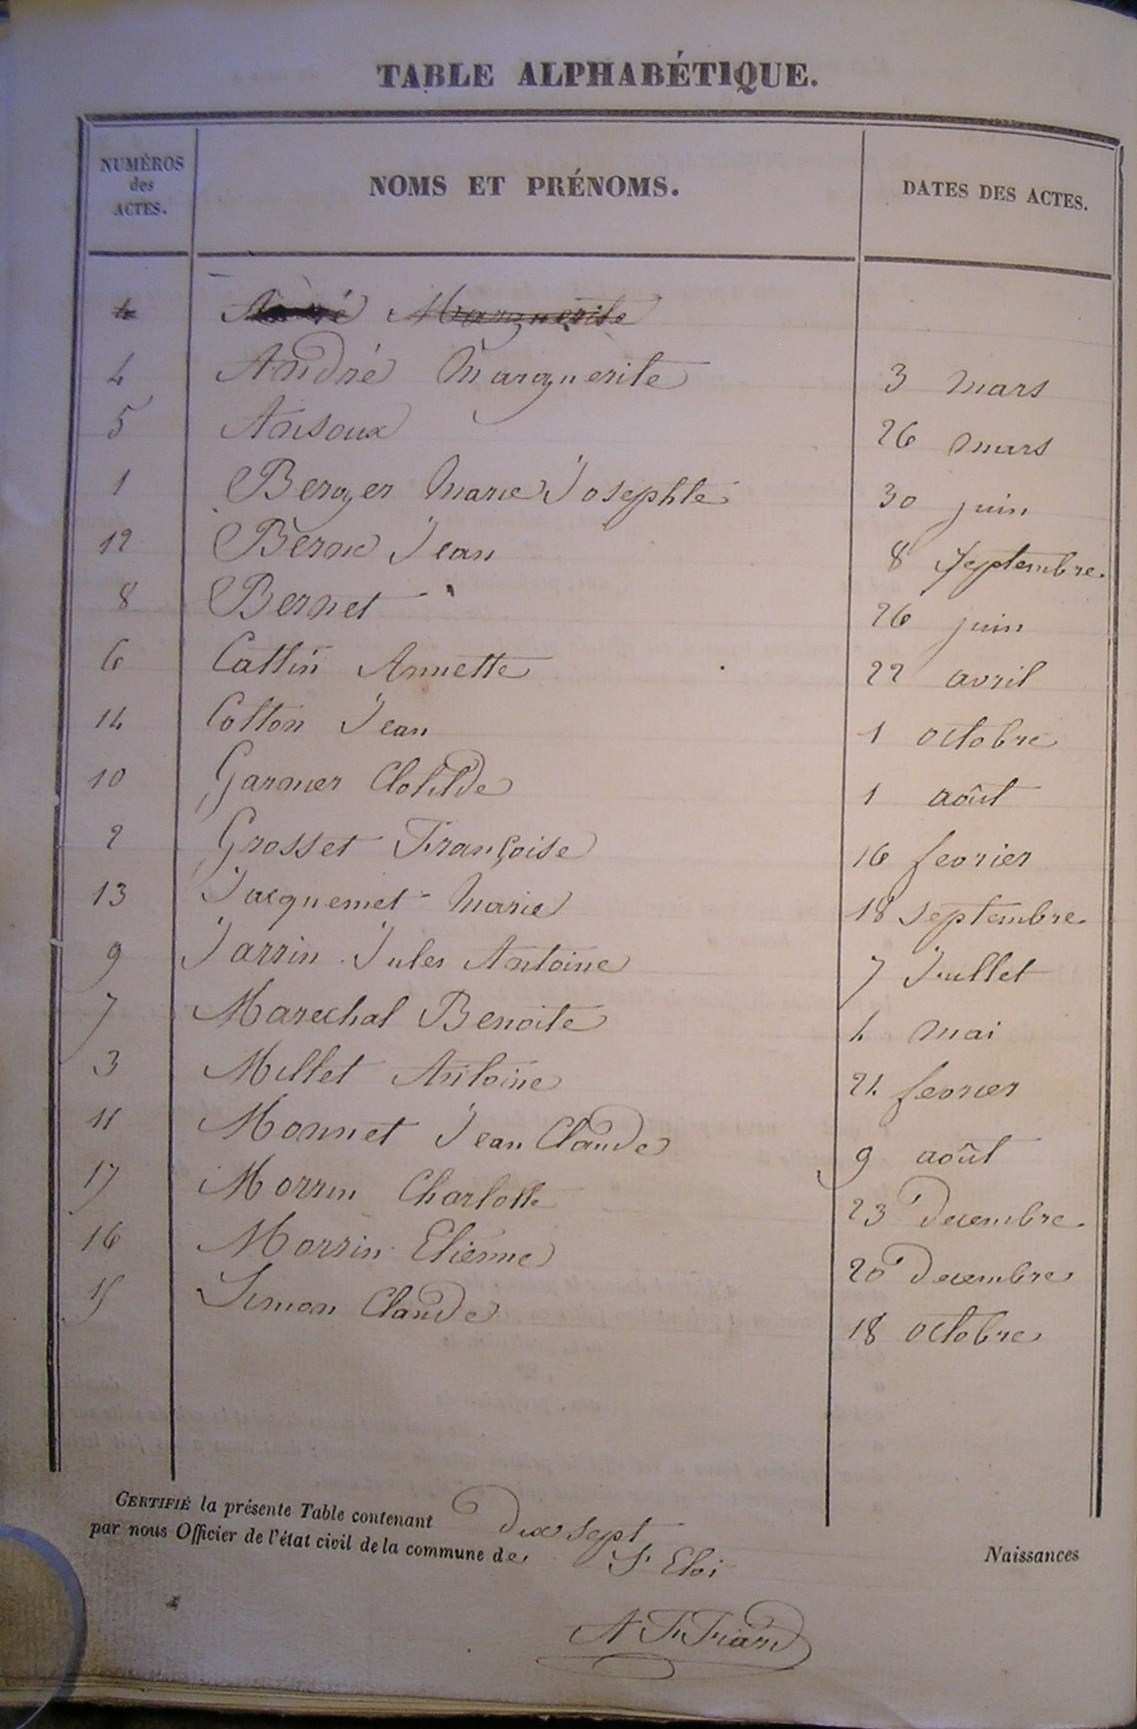 TABLE ALPHABÉTIQUE.
NUMÉROS des ACTES. NOMS ET PRÉNOMS. DATES DES ACTES.
4 André Marguerite
4 André Marguerite 3 mars
5 Ansoux 26 mars
1 Berger Marie Josephte 30 juin
12 Bernu Jean 8 Septembre.
8 Bernet 26 juin
6 Cattin Annette 22 avril
14 Cotton Jean 1 octobre
10 Garnier Clotilde 1 août
2 Grosset Françoise 16 fevrier
13 Jacquemet Marie 18 septembre.
9 Jarrin Jules Antoine 7 Juillet
7 Marechal Benoite 4 mai
3 Millet Antoine 24 fevrier
11 Monnet Jean Claude 9 août
17 Morrin Charlotte 23 decembre.
16 Morrin Etienne 20 decembre
15 Simon Claude 18 octobre
CERTIFIÉ la présente Table contenant dix sept Naissances
par nous Officier de l'état civil de la commune de St Eloi